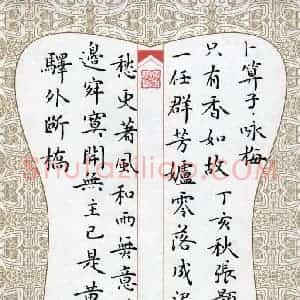 驛外斷橋
邊寂寞開無主已是黃
愁更著風和雨無意
一任群芳妒零落成泥
只有香如故丁亥秋張
卜算子咏梅